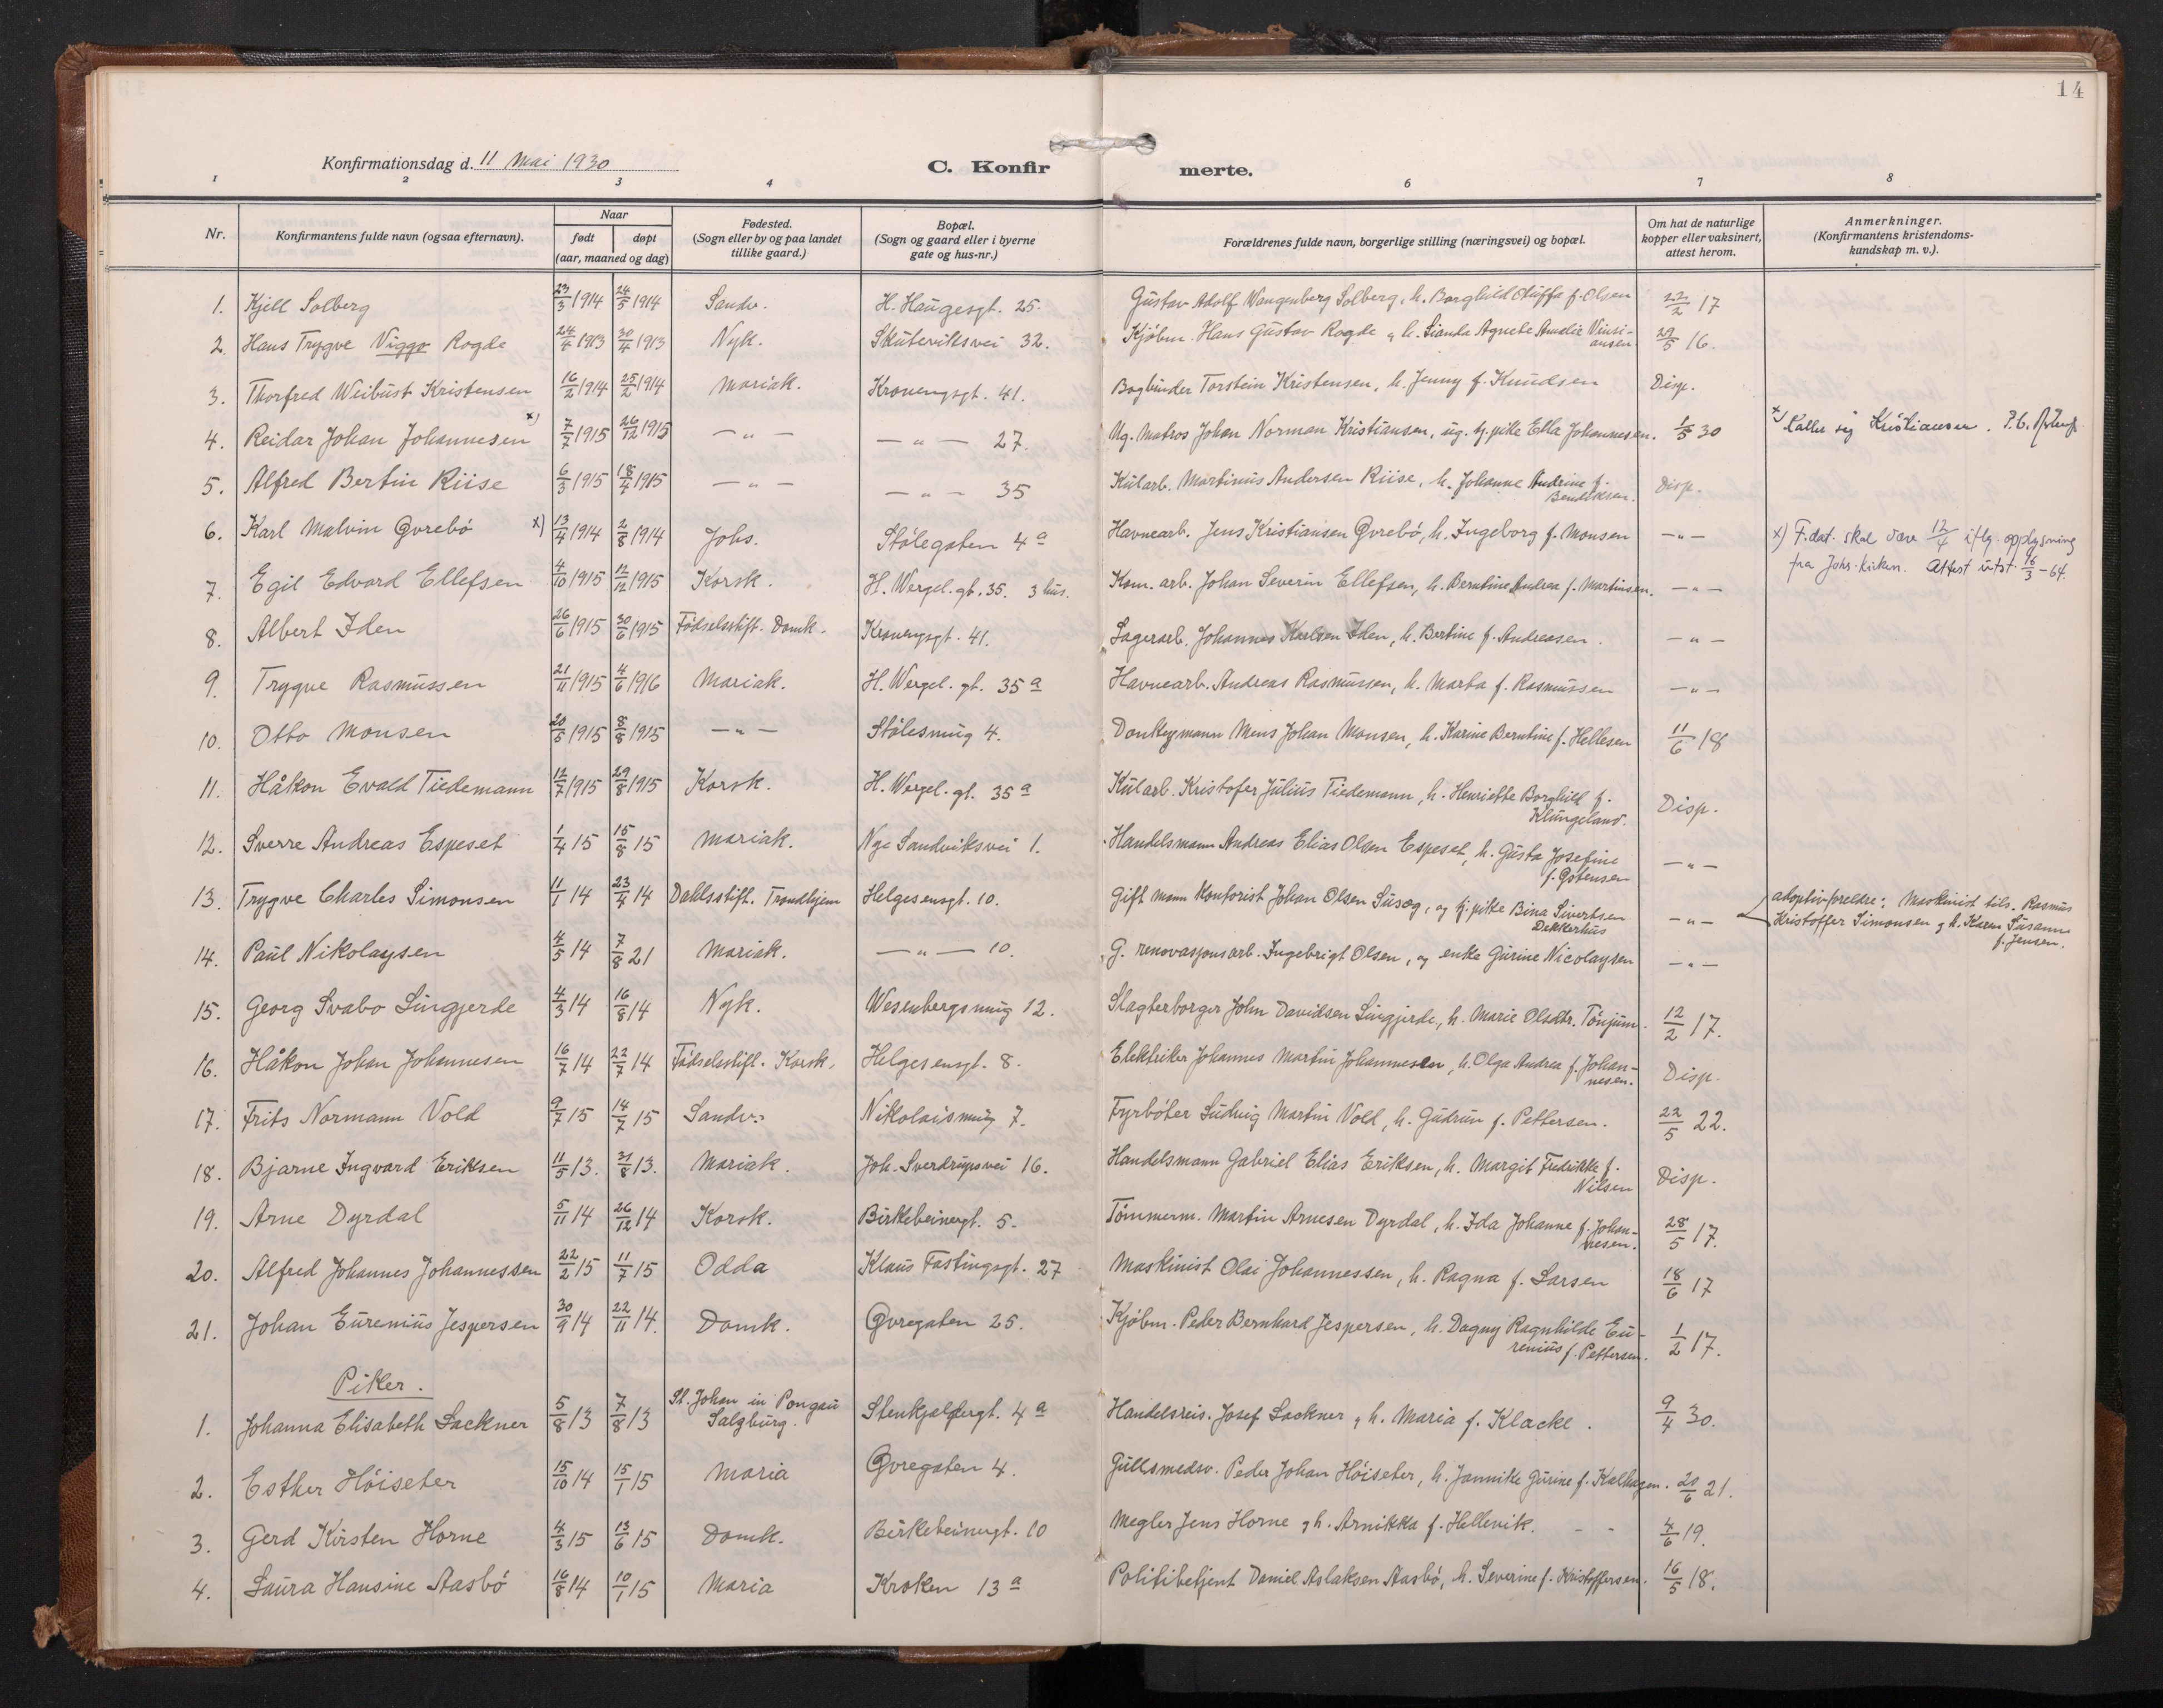 14
Konfirmationsdag d. 11 Mai 1930
C. Konfirmerte.
1 2 3 4 5 6 7 8
Nr. | Konfirmantens fulde navn (ogsaa efternavn). | Naar født døpt (aar, maaned og dag) | Fødested. (Sogn eller by og paa landet tillike gaard.) | Bopæl. (Sogn og gaard eller i byerne gate og hus-nr.) | Forældrenes fulde navn, borgerlige stilling (næringsvei) og bopæl. | Om hat de naturlige kopper eller vaksinert, attest herom. | Anmerkninger. (Konfirmantens kristendomskundskap m. v.).
1. Kjell Solberg 23/3 1914 24/5 1914 Sandv. H. Haugesgt. 25. Gustav Adolf Wangenberg Solberg, h. Borghild Oluffa f. Olsen 22/2 17
2. Hans Trygve Viggo Rogde 24/4 1913 30/4 1913 Nyk. Skuteviksvei 32. Kjøbm. Hans Gustav Rogde, h. Sianda Agnete Amalie Vinsiansen 29/5 16.
3. Thorfred Weibust Kristensen 16/2 1914 25/2 1914 Mariak. Kronengsgt. 41. Bogbinder Torstein Kristensen, h. Jenny f. Knudsen Disp.
4. Reidar Johan Johannesen x) 7/7 1915 26/12 1915 — " — — " — 27. Ug. Matros Johan Norman Kristiansen, ug. tj. pike Ella Johannesen. 1/5 30 x) Kaller sig Kristiansen.
5. Alfred Bertin Riise 6/3 1915 18/4 1915 — " — — " — 35 Kularb. Martinus Andersen Riise, h. Johanne Andrine f. Bendiksen. Disp.
6. Karl Malvin Øvrebö x) 13/4 1914 2/8 1914 Johs. Stölegaten 4 a Havnearb. Jens Kristiansen Øvrebö, h. Ingeborg f. Monsen — " — x) F.dat. skal være 12/4 iflg. opplysning fra Johs-kirken. Attest utst. 16/3 - 64.
7. Egil Edvard Ellefsen 4/10 1915 12/12 1915 Korsk. H. Wergel. gt. 35. 3 hus. Kom. arb. Johan Severin Ellefsen, h. Berntine Andrea f. Martinsen. — " —
8. Albert Iden 26/6 1915 30/6 1915 Födselsstift. Domk. Kronengsgt. 41. Lagerarb. Johannes Karlsen Iden, h. Bertine f. Andreasen. — " —
9. Trygve Rasmussen 21/11 1915 4/6 1916 Mariak. H. Wergel. gt. 35 a Havnearb. Andreas Rasmussen, h. Marta f. Rasmussen — " —
10. Otto Monsen 20/5 1915 8/8 1915 — " — Stölesmug 4. Donkeymann Mons Johan Monsen, h. Karine Berntine f. Hellesen 11/6 18
11. Håkon Evald Tiedemann 12/7 1915 29/8 1915 Korsk. H. Wergel. gt. 35 a Kularb. Kristofer Julius Tiedemann, h. Henriette Borghild f. Klungeland. Disp.
12. Sverre Andreas Espeset 1/4 15 15/8 15 Mariak. Nye Sandviksvei 1. Handelsmann Andreas Elias Olsen Espeset, h. Gusta Josefine f. Gstensen — " —
13. Trygve Charles Simonsen 11/1 14 23/4 14 Dahlsstift. Trondhjem Helgesensgt. 10. Gift mann Kontorist Johan Olsen Susæg, og tj. pike Bina Sivertsen Dekkerhus — " — adoptivforeldre: Maskinist tils. Rasmus Kristoffer Simonsen g h. Karen Susanne f. Jensen.
14. Paul Nikolaysen 4/5 14 7/8 21 Mariak. — " — 10. G. renovasjonsarb. Ingebrigt Olsen, og enke Gurine Nicolaysen — " —
15. Georg Svabo Lingjerde 4/3 14 16/8 14 Nyk. Wesenbergsmug 12. Slagterborger John Davidsen Lingjerde, h. Marie Olsdtr. Tönjum. 12/2 17.
16. Håkon Johan Johannesen 16/7 14 22/7 14 Födselsstift. Korsk. Helgesensgt. 8. Elektriker Johannes Martin Johannesen, h. Olga Andrea f. Johannesen. Disp.
17. Frits Normann Vold 9/7 15 14/7 15 Sandv. Nikolaismug 7. Fyrböter Ludvig Martin Vold, h. Gudrun f. Pettersen. 22/5 22.
18. Bjarne Ingvard Eriksen 11/5 13. 31/8 13. Mariak. Joh. Sverdrupsvei 16. Handelsmann Gabriel Elias Eriksen, h. Margit Fredrikke f. Nilsen Disp.
19. Arne Dyrdal 5/11 14 26/12 14 Korsk. Birkebeinergt. 5. Tömmerm. Martin Arnesen Dyrdal, h. Ida Johanne f. Johannesen. 28/5 17.
20. Alfred Johannes Johannessen 22/2 15 11/7 15 Odda Klaus Fastingsgt. 27 Maskinist Olai Johannessen, h. Ragna f. Larsen 18/6 17
21. Johan Eurenius Jespersen 30/9 14 22/11 14. Domk. Øvregaten 25. Kjøbm. Peder Bernhard Jespersen, h. Dagny Ragnhilde Eurenius f. Pettersen. 1/2 17.
Piker.
1. Johanna Elisabeth Lackner 5/8 13 7/8 13 St. Johan in Pongau Salzburg. Stenkjellergt. 4 a Handelsreis. Josef Lackner, h. Maria f. Klacke. 9/4 30.
2. Esther Höiseter 15/10 14 15/1 15 Maria Øvregaten 4. Gullsmedsv. Peder Johan Höiseter, h. Jannikke Gurine f. Kalhagen. 20/6 21.
3. Gerd Kirsten Horne 4/3 15 13/6 15 Domk. Birkebeinergt. 10 Megler Jens Horne g h. Arnikka f. Hellevik. 4/6 19.
4. Laura Hansine Aasbö 16/8 14 10/1 15 Maria Kroken 13 a Politibetjent Daniel Aslaksen Aasbö, h. Severine f. Kristoffersen. 16/5 18.